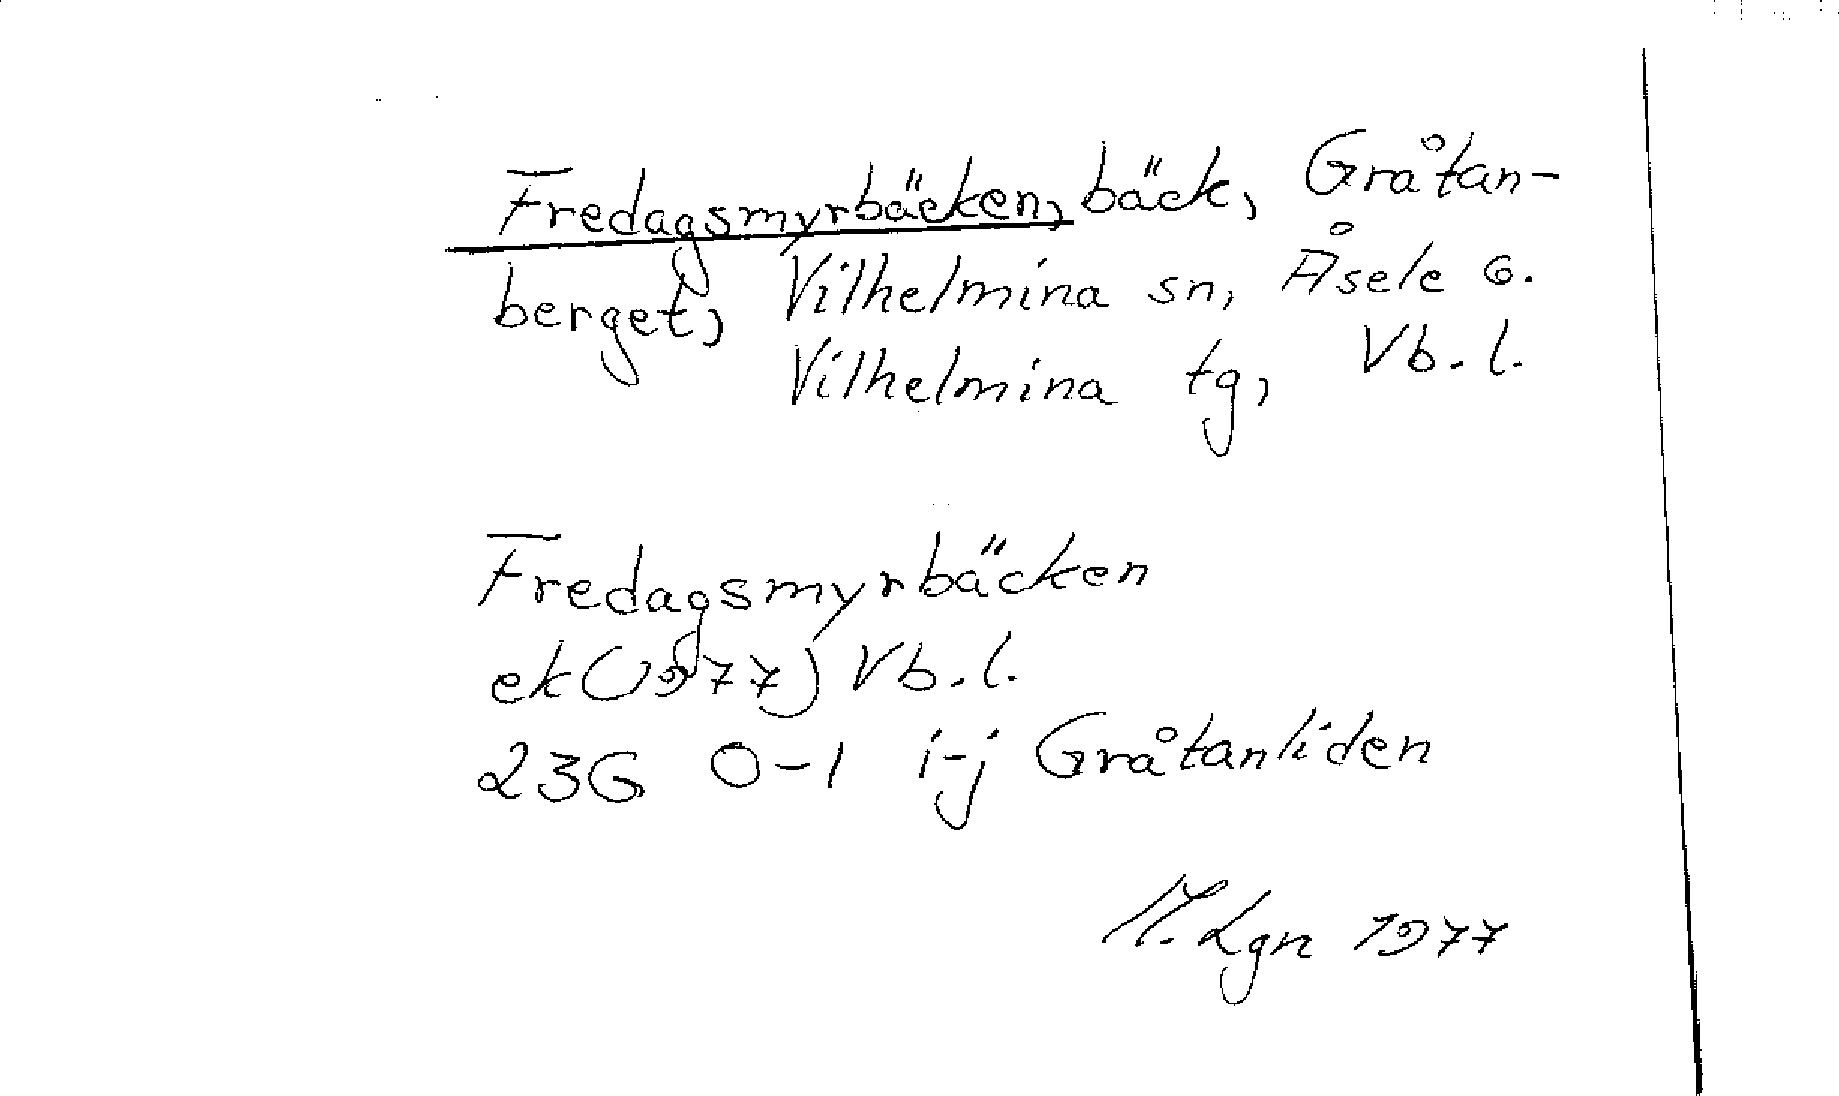 Fredagsmyrbäcken, bäck, Gråtan-
berget, Vilhelmina sn, Åsele G.
Vilhelmina tg, Vb. l.
Fredagsmyrbäcken
ek (1977) Vb. l.
23G 0-1 i-j Gråtanliden
M. Lgn 1977